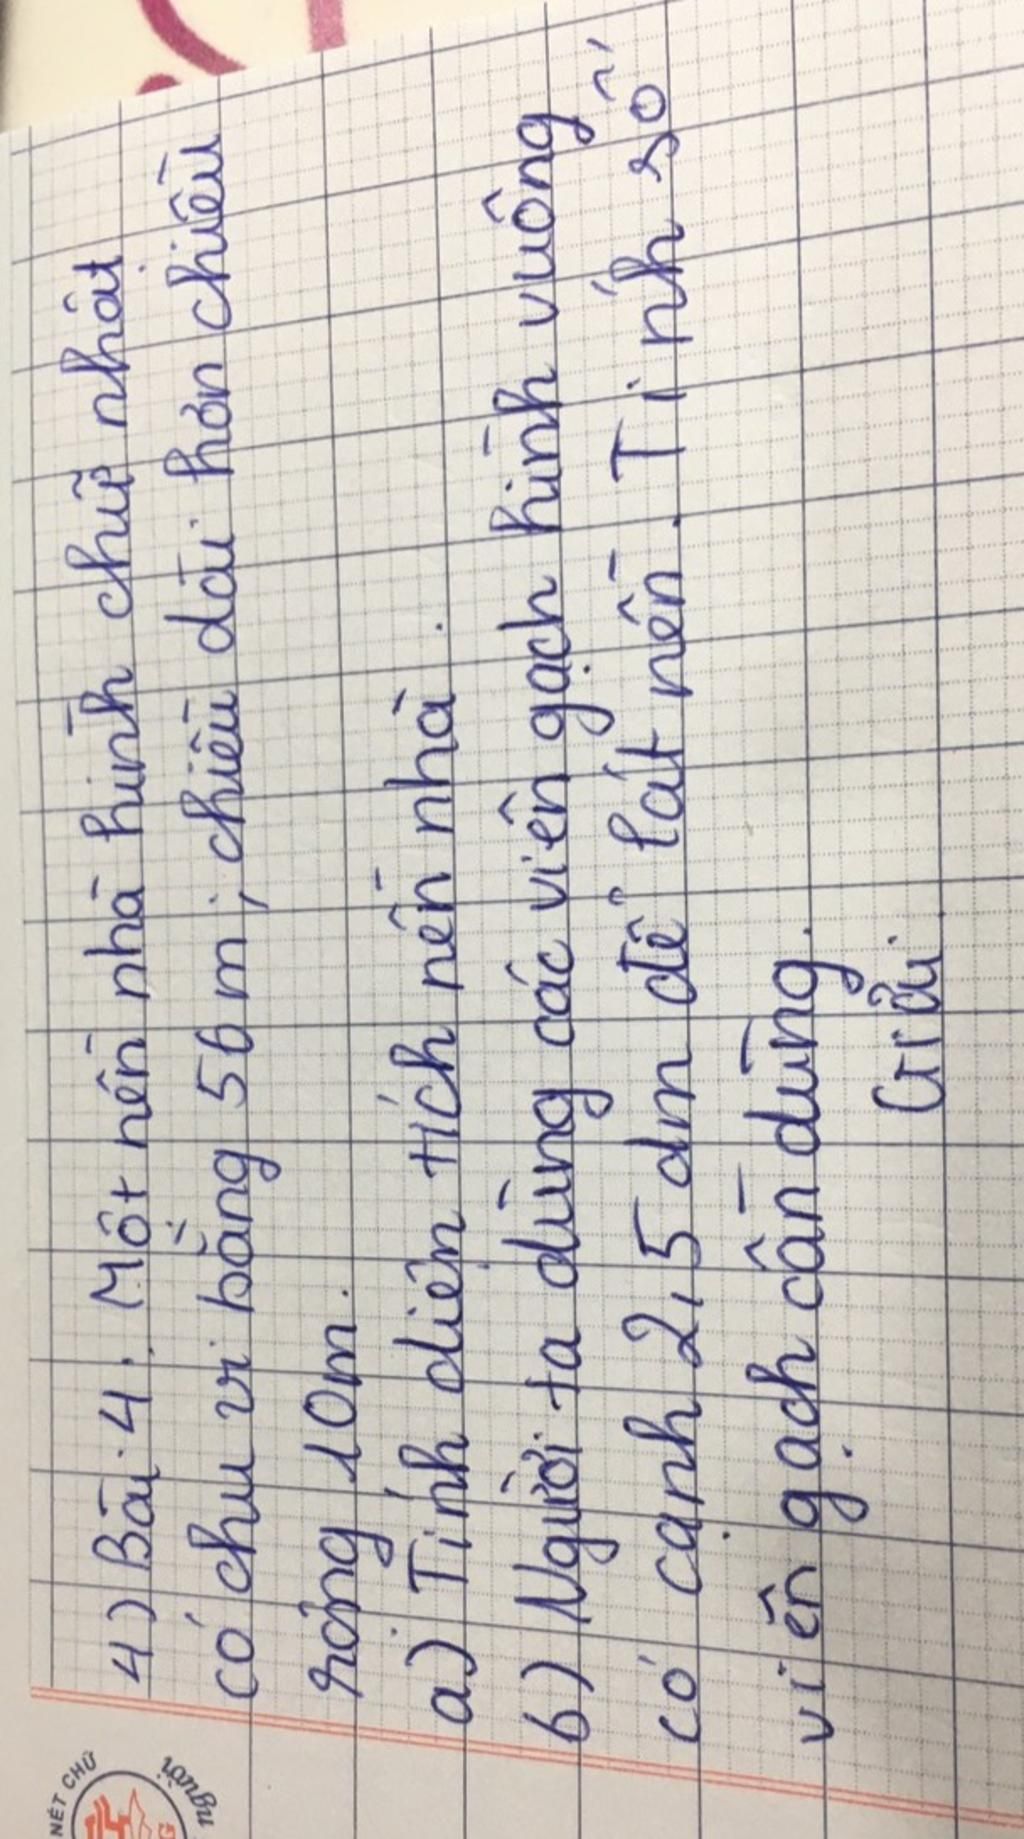 4) Bài 4: Một nền nhà hình chữ nhật
có chu vi bằng 56 m; chiều dài hơn chiều
rộng 10m.
a) Tính diện tích nền nhà.
b) Người ta dùng các viên gạch hình vuông
có cạnh 2,5 dm để lát nền. Tính số
viên gạch cần dùng.
Giải.
NÉT CHỮ
người